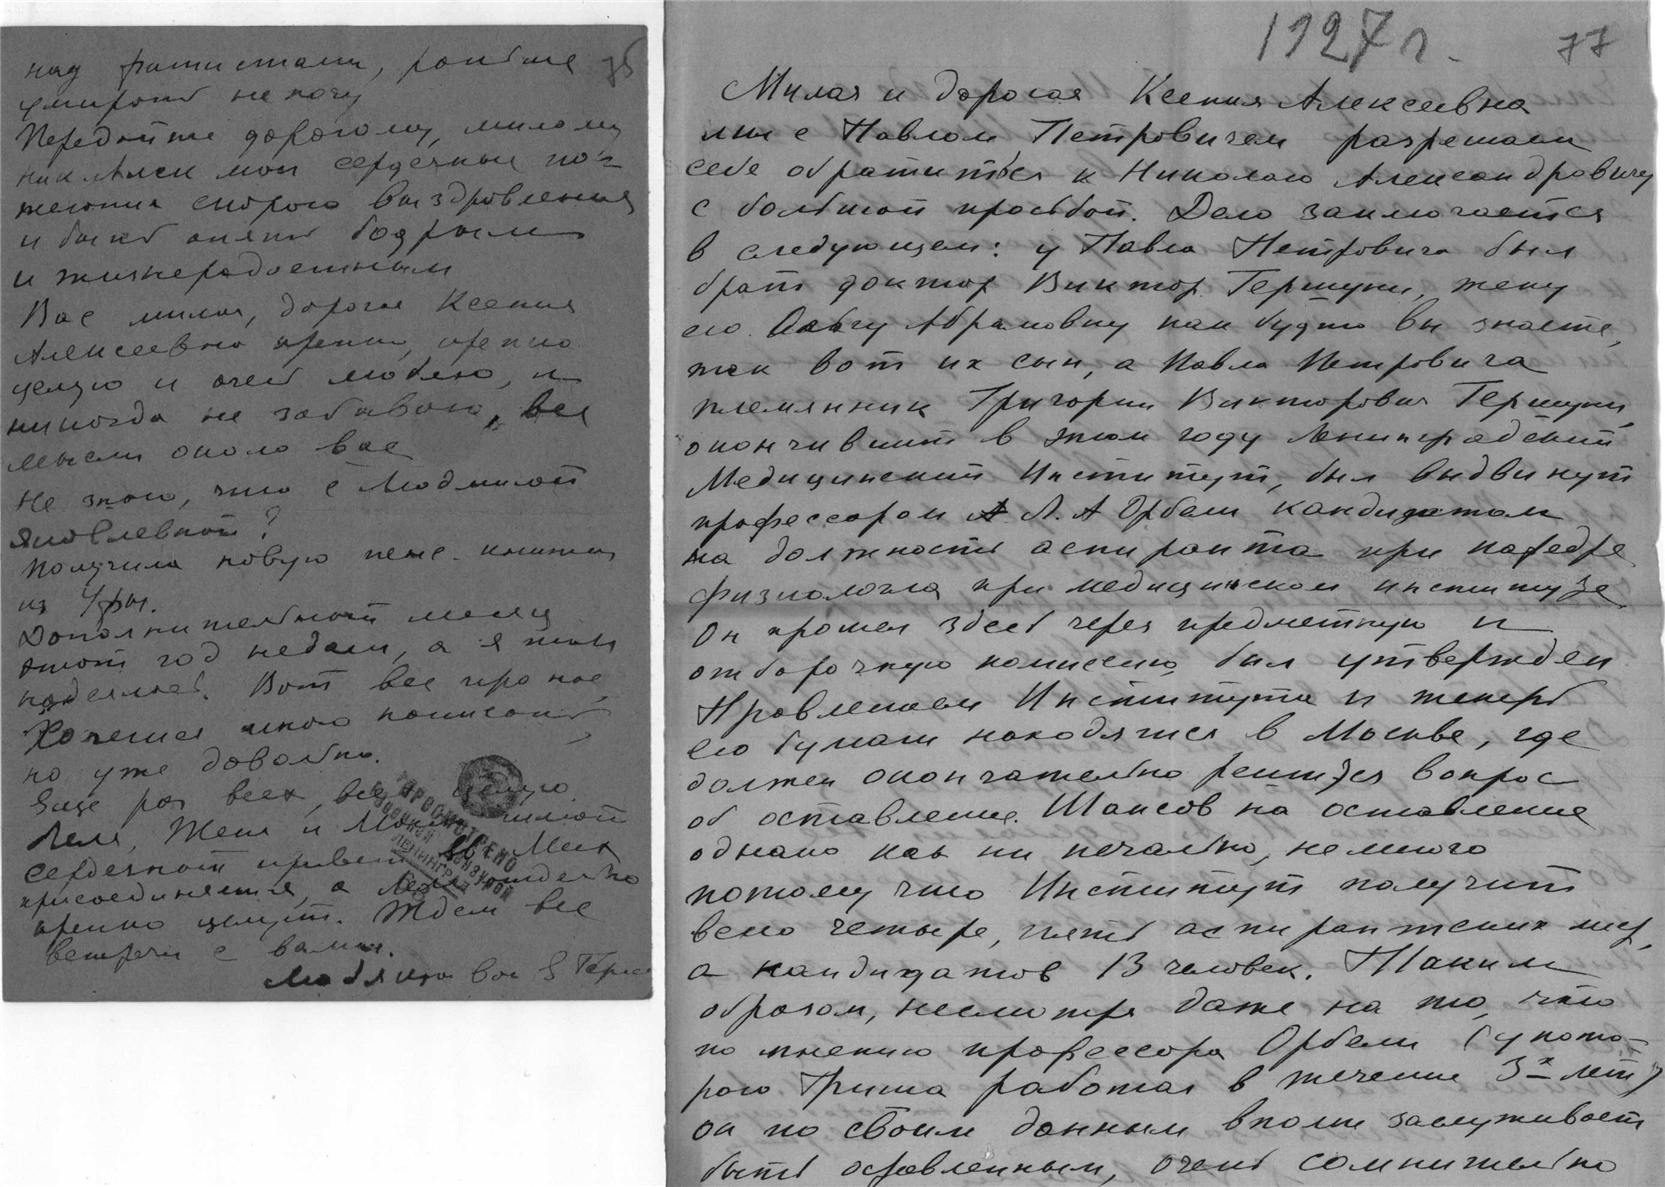 над фашистами, раньше 76
умирать не хочу
Передайте дорогому, милому
Ник Алек мои сердечные по-
желания скорого выздровления
и быть опять бодрым
и жизнерадостным
Вас милая, дорогая Ксения
Алексеевна крепко, крепко
целую и очень люблю, и
никогда не забываю, все
мысли около вас
Не знаю, что с Людмилой
Яковлевной?
Получила новую пенс. книжку
из Уфы.
Дополнительной
этот год недали, а я так
надеялась. Вот все про нас,
Хочется много написать,
но уже довольно.
Еще раз всех, всех целую.
Леля, Женя и
сердечный привет
присоединяется, а
крепко целует. Ждем все
встречи с вами.
Любящая вас
ПРОСМОТРЕНО
ВОЕННОЙ ЦЕНЗУРОЙ
ЛЕНИНГРАД
1927 г. 77
Милая и дорогая Ксения Алексеевна
мы с Павлом Петровичем разрешаем
себе обратиться к Николаю Александровичу
с большой просьбой. Дело заключается
в следующем: у Павла Петровича был
брат доктор Виктор Гершуни, жену
его Абрамовну как будто вы знаете,
так вот их сын, а Павла Петровича
племянник Григорий Викторович Гершуни,
окончивший в этом году Ленинградский
Медицинский Институт, был выдвинут
профессором Л. А Орбели кандидатом
на должность аспиранта при кафедре
физиологии при медицинском институте
Он прошел здесь через предметную и
отборочную комиссию, был утвержден
Правлением Института и теперь
его бумаги находятся в Москве, где
должен окончательно решится вопрос
об оставление. Шансов на оставление
однако как ни печально, немного
потому что Институт получит
всего четыре, пять аспирантских мест,
а кандидатов 13 человек. Таким
образом, несмотря даже на то, что
по мнению профессора Орбели (у кото-
рого Гриша работал в течение 3х лет)
он по своим данным вполне заслуживает
быть оставленным, очень сомнительно